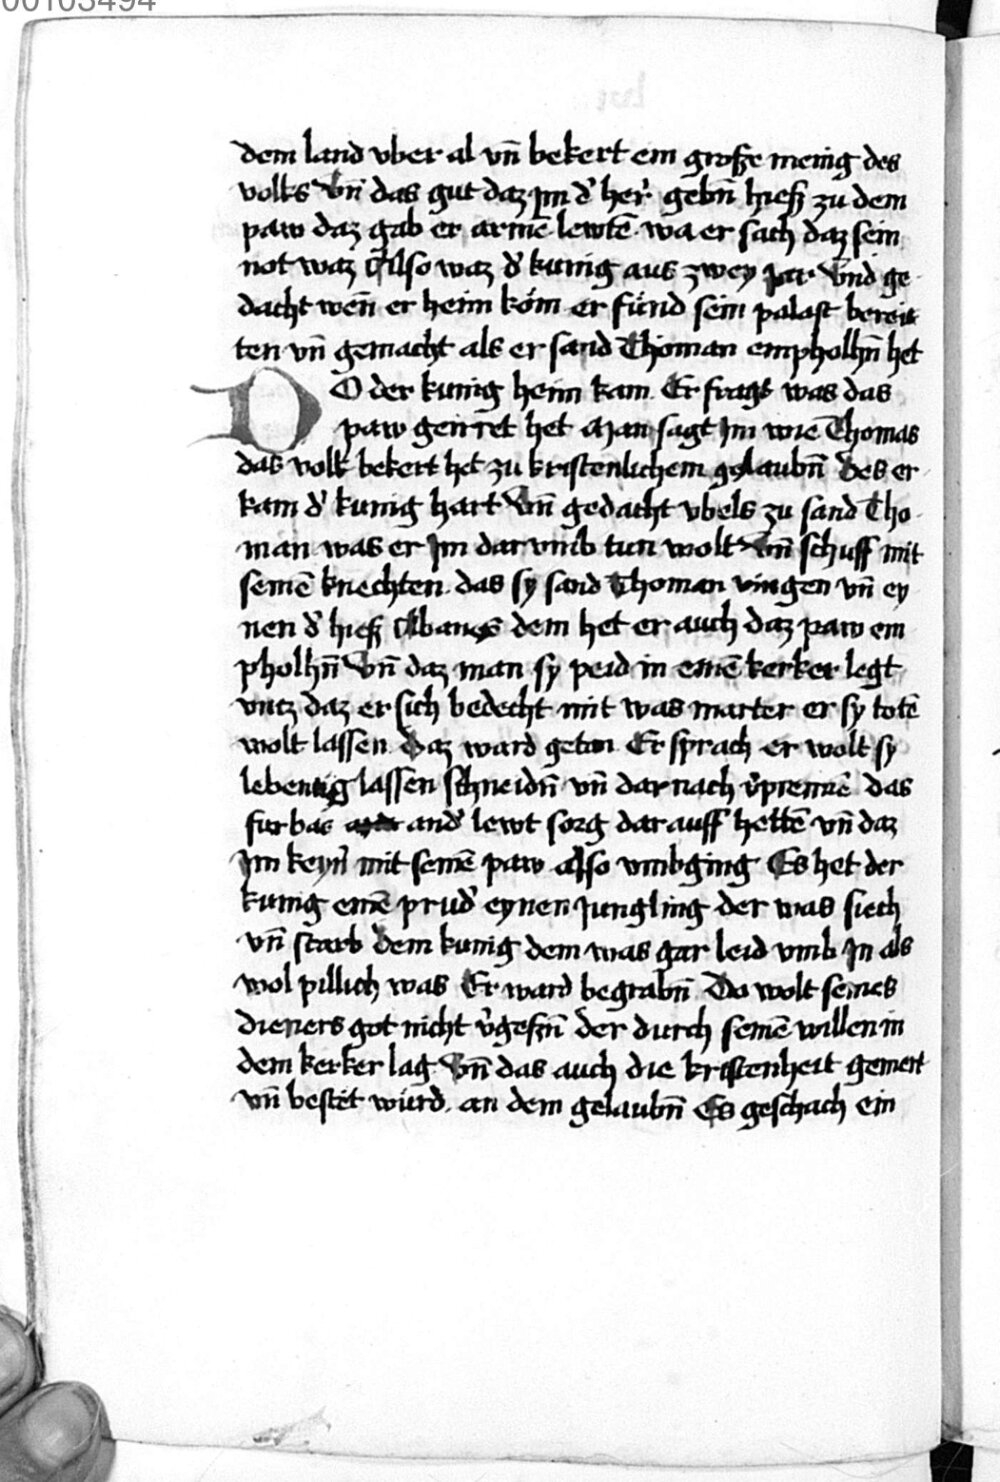 00103494
dem land vber al vn̄ bekert ein große menig des
volks Vn̄ das gut daz Im d' her' gebn̄ hieß zu dem
paw daz gab er armē lewtē wa er sach daz sein
not waz Also waz d' kunig aus zwey Jar Vnd ge
dacht wen̄ er heim köm er fünd sein palast berei
ten vn̄ gemacht als er sand Thoman empholhn̄ het
DO der kunig heim kam Er fragt was das
paw gerirret het Man sagt Im wie Thomas
das volk bekert het zu kristenlichem gelaubn̄ Des er
kam d' kunig hart Vn̄ gedacht vbels zu sand Tho
man was er Im dar vmb tun wolt Vn̄ schuff mit
seinē knechten das sy sand Thoman vingen vn̄ ey
nen d' hieß Abanes dem het er auch daz paw em
pholhn̄ Vn̄ daz man sy peid in einē kerker legt
vntz daz er sich bedecht mit was marter er sy totē
wolt lassen Daz ward getan Er sprach er wolt sy
lebentig lassen schneidn̄ vn̄ dar nach v'prennē das
furbas and' lewt sorg dar auff hettē vn̄ daz
Im keyn' mit seinē paw also vmbging Es het der
kunig einē prud' eynen Jungling der was siech
vn̄ starb dem kunig dem was gar leid vmb In als
wol pillich was Er ward begrabn̄ Do wolt seines
dieners got nicht v'gessn̄ der durch seinē willen in
dem kerker lag Vn̄ das auch die kristenheit gemert
vn̄ bestët würd an dem gelaubn̄ Es geschach ein